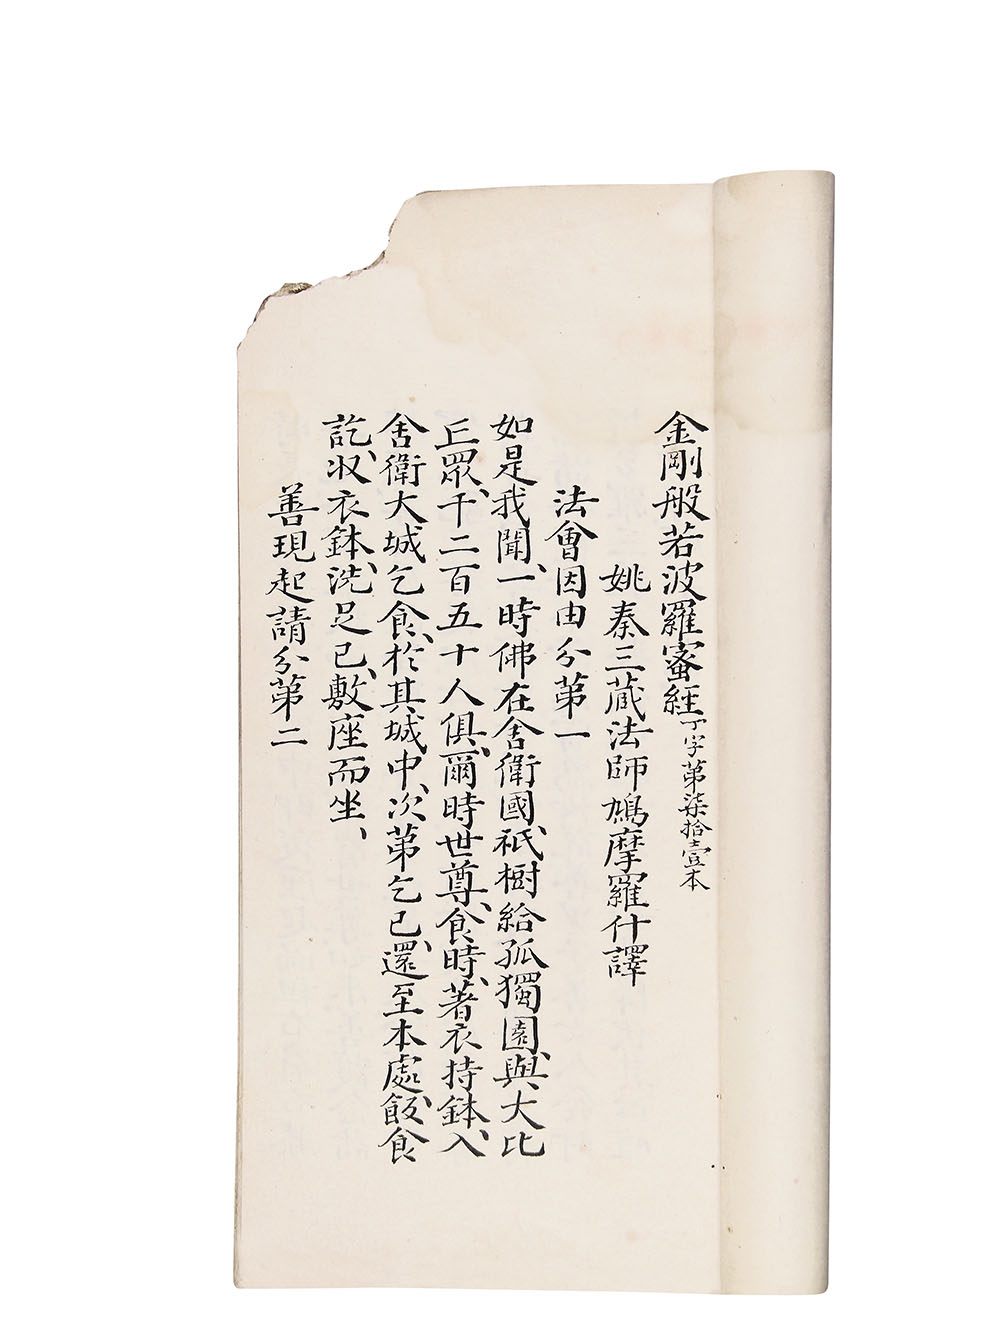 金剛般若波羅蜜經丁字第柒拾壹本
姚秦三藏法師鳩摩羅什譯
法會因由分第一
如是我聞、一時佛在舍衛國、祇樹給孤獨園、與大比
丘眾、千二百五十人俱、爾時世尊、食時、著衣持鉢、入
舍衛大城乞食、於其城中、次第乞已、還至本處、飯食
訖、收衣鉢、洗足已、敷座而坐、
善現起請分第二